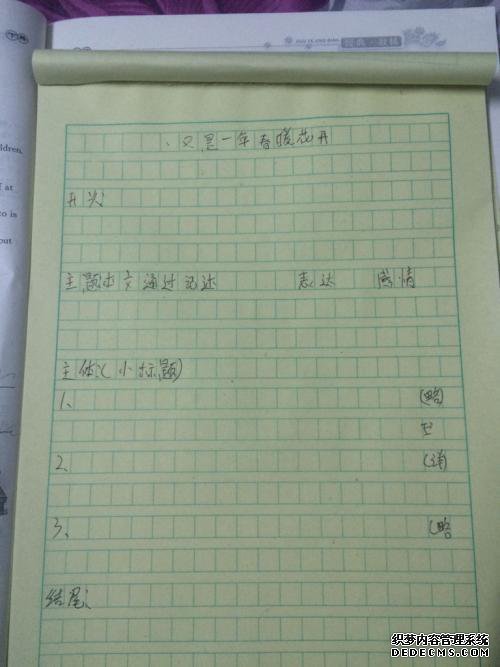 经典·教材
ldren.
f at
to is
out
又是一年春暖花开
开头:
主题:本文通过记述 表达 感情
主体:(小标题)
1、 (略)
2、 (详)
3、 (略
结尾:
织梦内容管理系统
DEDECMS.COM